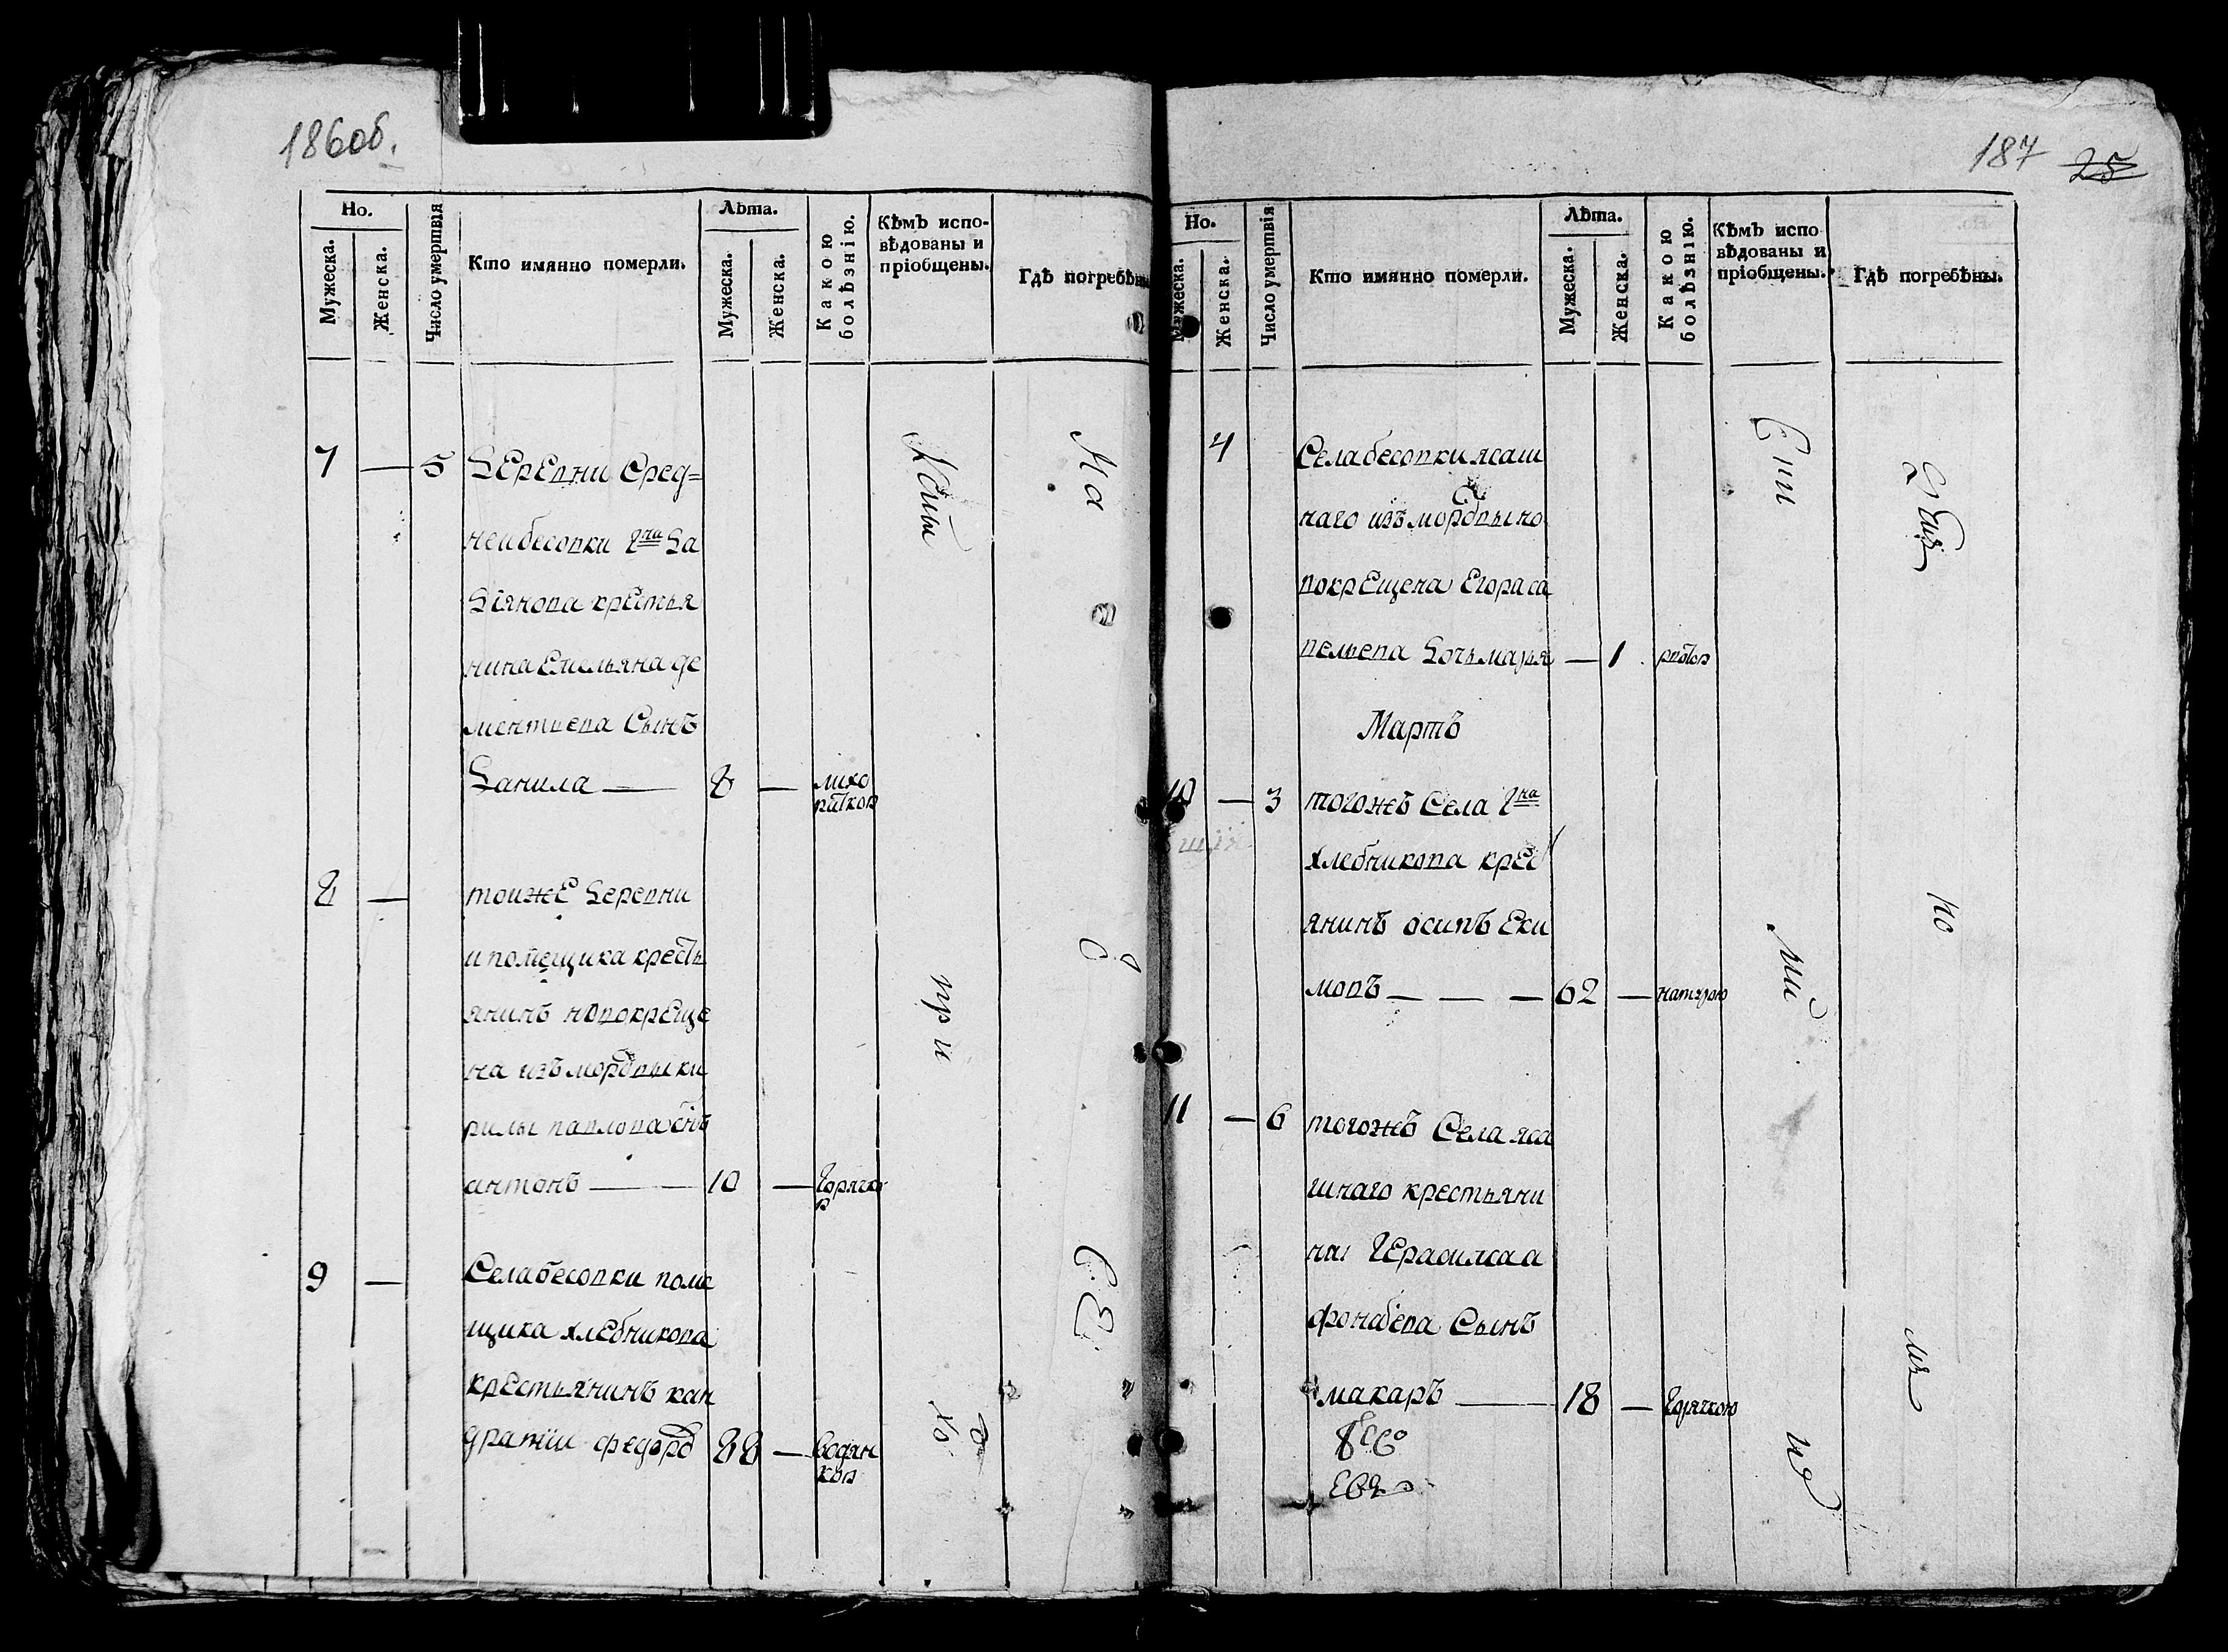 186об.
Но.
Мужеска.
Женска.
Число умертвія
Кто имянно померли.
Лѣта.
Мужеска.
Женска.
Какою болѣзнію.
Кѣмъ испо-
вѣдованы и
пріобщены.
Гдѣ погребѣны
7 — 5 Деревни Сред=
неи бесовки гна Да
Діянова крестья
нина Емельяна де
ментиева Сынъ
Данила — 8 — лихо
раткою
8 — тоиже Деревни
и помещика кресть
янинъ новокреще
на изъ мордвы ки
рилы павлова снъ
антонъ — 10 — горячко
ю
9 — Села бесовки поме
щика хлебникова
крестьянинъ кан
дратии федоро 88 — водян
кою
при
На
187 25
Но.
Мужеска.
Женска.
Число умертвія
Кто имянно померли.
Лѣта.
Мужеска.
Женска.
Какою болѣзнію.
Кѣмъ испо
вѣдованы и
пріобщены.
Гдѣ погребѣны.
4 Села бесовки ясаш
наго изъ мордвы но
вокрещена Егора са
вельева Дочь марья — 1
Мартъ
10 — 3 тогожъ Села гна
хлебникова крес
янинъ осипъ Еки
мовъ — — — 62 — натурою
11 — 6 тогожъ Села яса
шнаго крестьяни
на Герасима а
Сынъ
макаръ — 18 — горячкою
Епи
ми
но